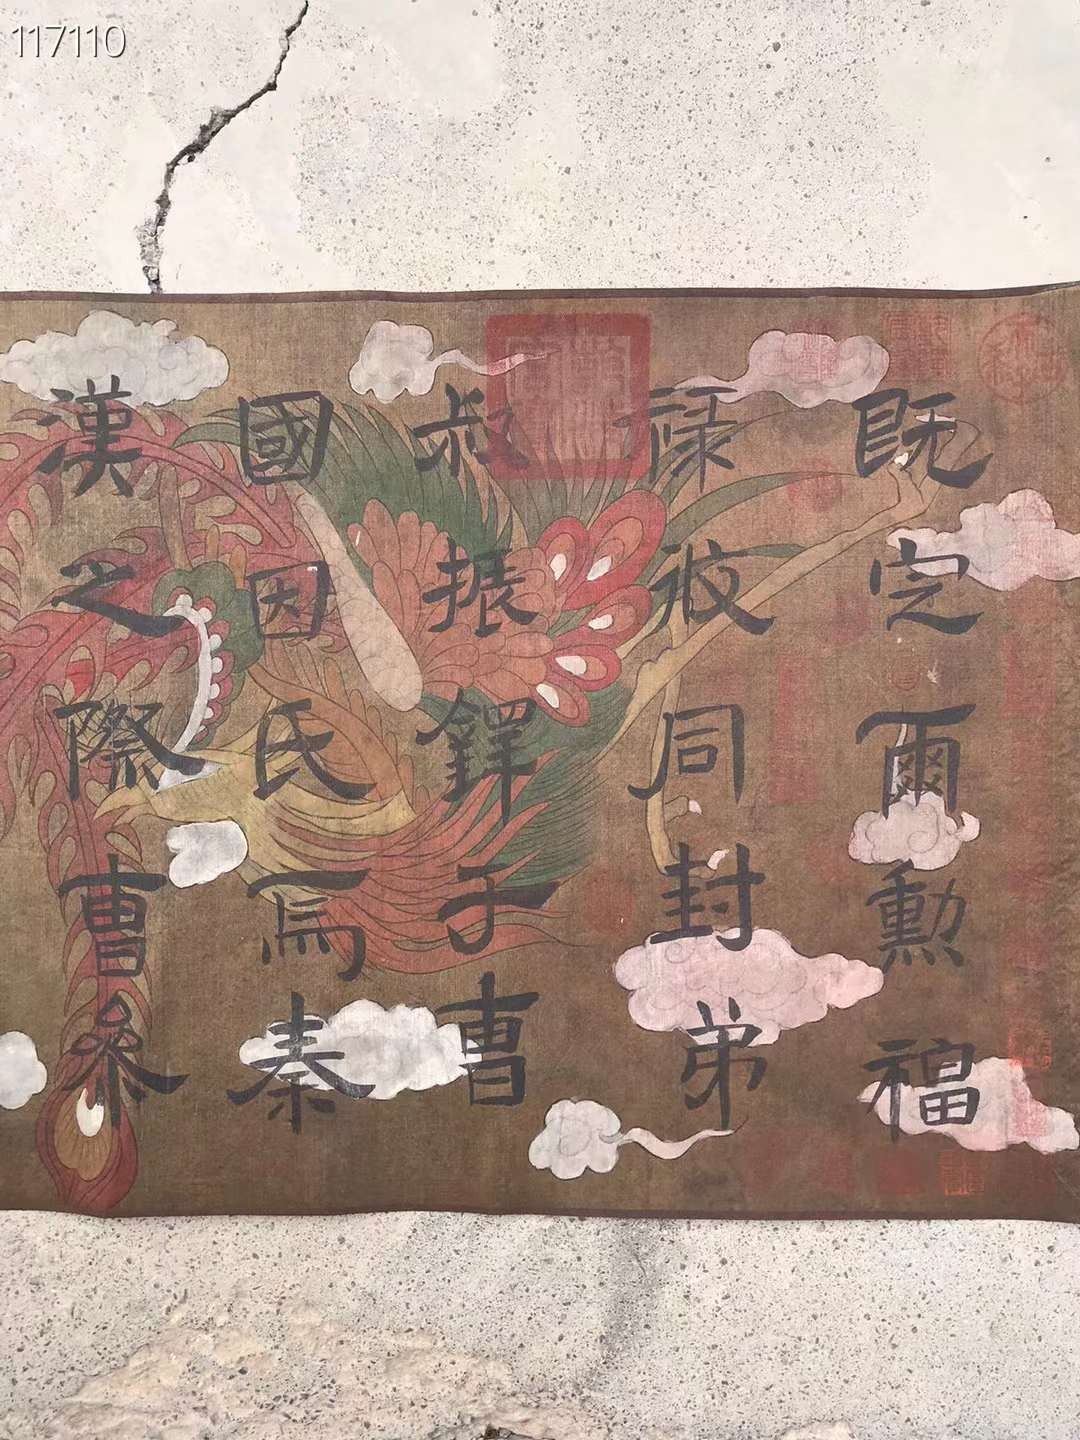 117110
既定爾勳福
祿攸同封弟
叔振鐸于曹
國因氏焉秦
漢之際曹參